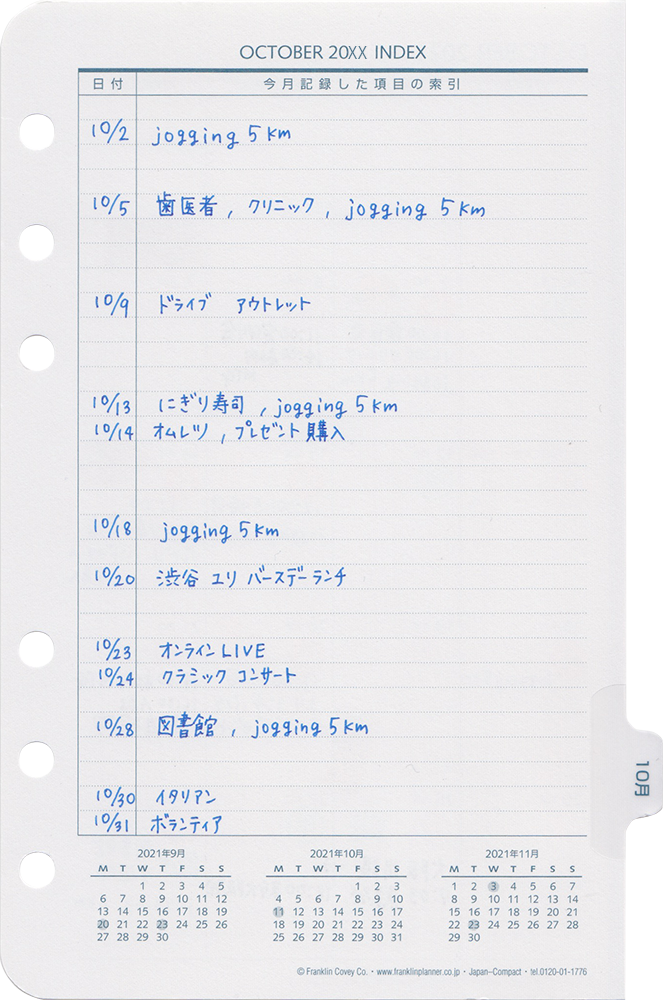 OCTOBER 20XX INDEX
日付 今月記録した項目の索引
10/2 jogging 5km
10/5 歯医者, クリニック, jogging 5km
10/9 ドライブ アウトレット
10/13 にぎり寿司, jogging 5km
10/14 オムレツ, プレゼント購入
10/18 jogging 5km
10/20 渋谷 ユリ バースデーランチ
10/23 オンラインLIVE
10/24 クラシック コンサート
10/28 図書館, jogging 5km
10月
10/30 イタリアン
10/31 ボランティア
2021年9月 2021年10月 2021年11月
M T W T F S S M T W T F S S M T W T F S S
1 2 3 4 5 1 2 3 1 2 3 4 5 6 7
6 7 8 9 10 11 12 4 5 6 7 8 9 10 8 9 10 11 12 13 14
13 14 15 16 17 18 19 11 12 13 14 15 16 17 15 16 17 18 19 20 21
20 21 22 23 24 25 26 18 19 20 21 22 23 24 22 23 24 25 26 27 28
27 28 29 30 25 26 27 28 29 30 31 29 30
© Franklin Covey Co. • www.franklinplanner.co.jp • Japan–Compact • tel.0120-01-1776